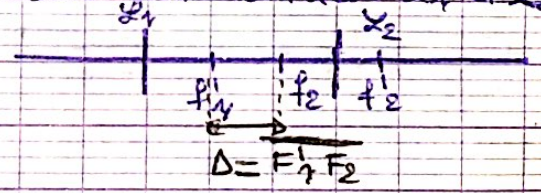 L₁ L₂
f'₁ f₂ f'₂
Δ = F'₁F₂